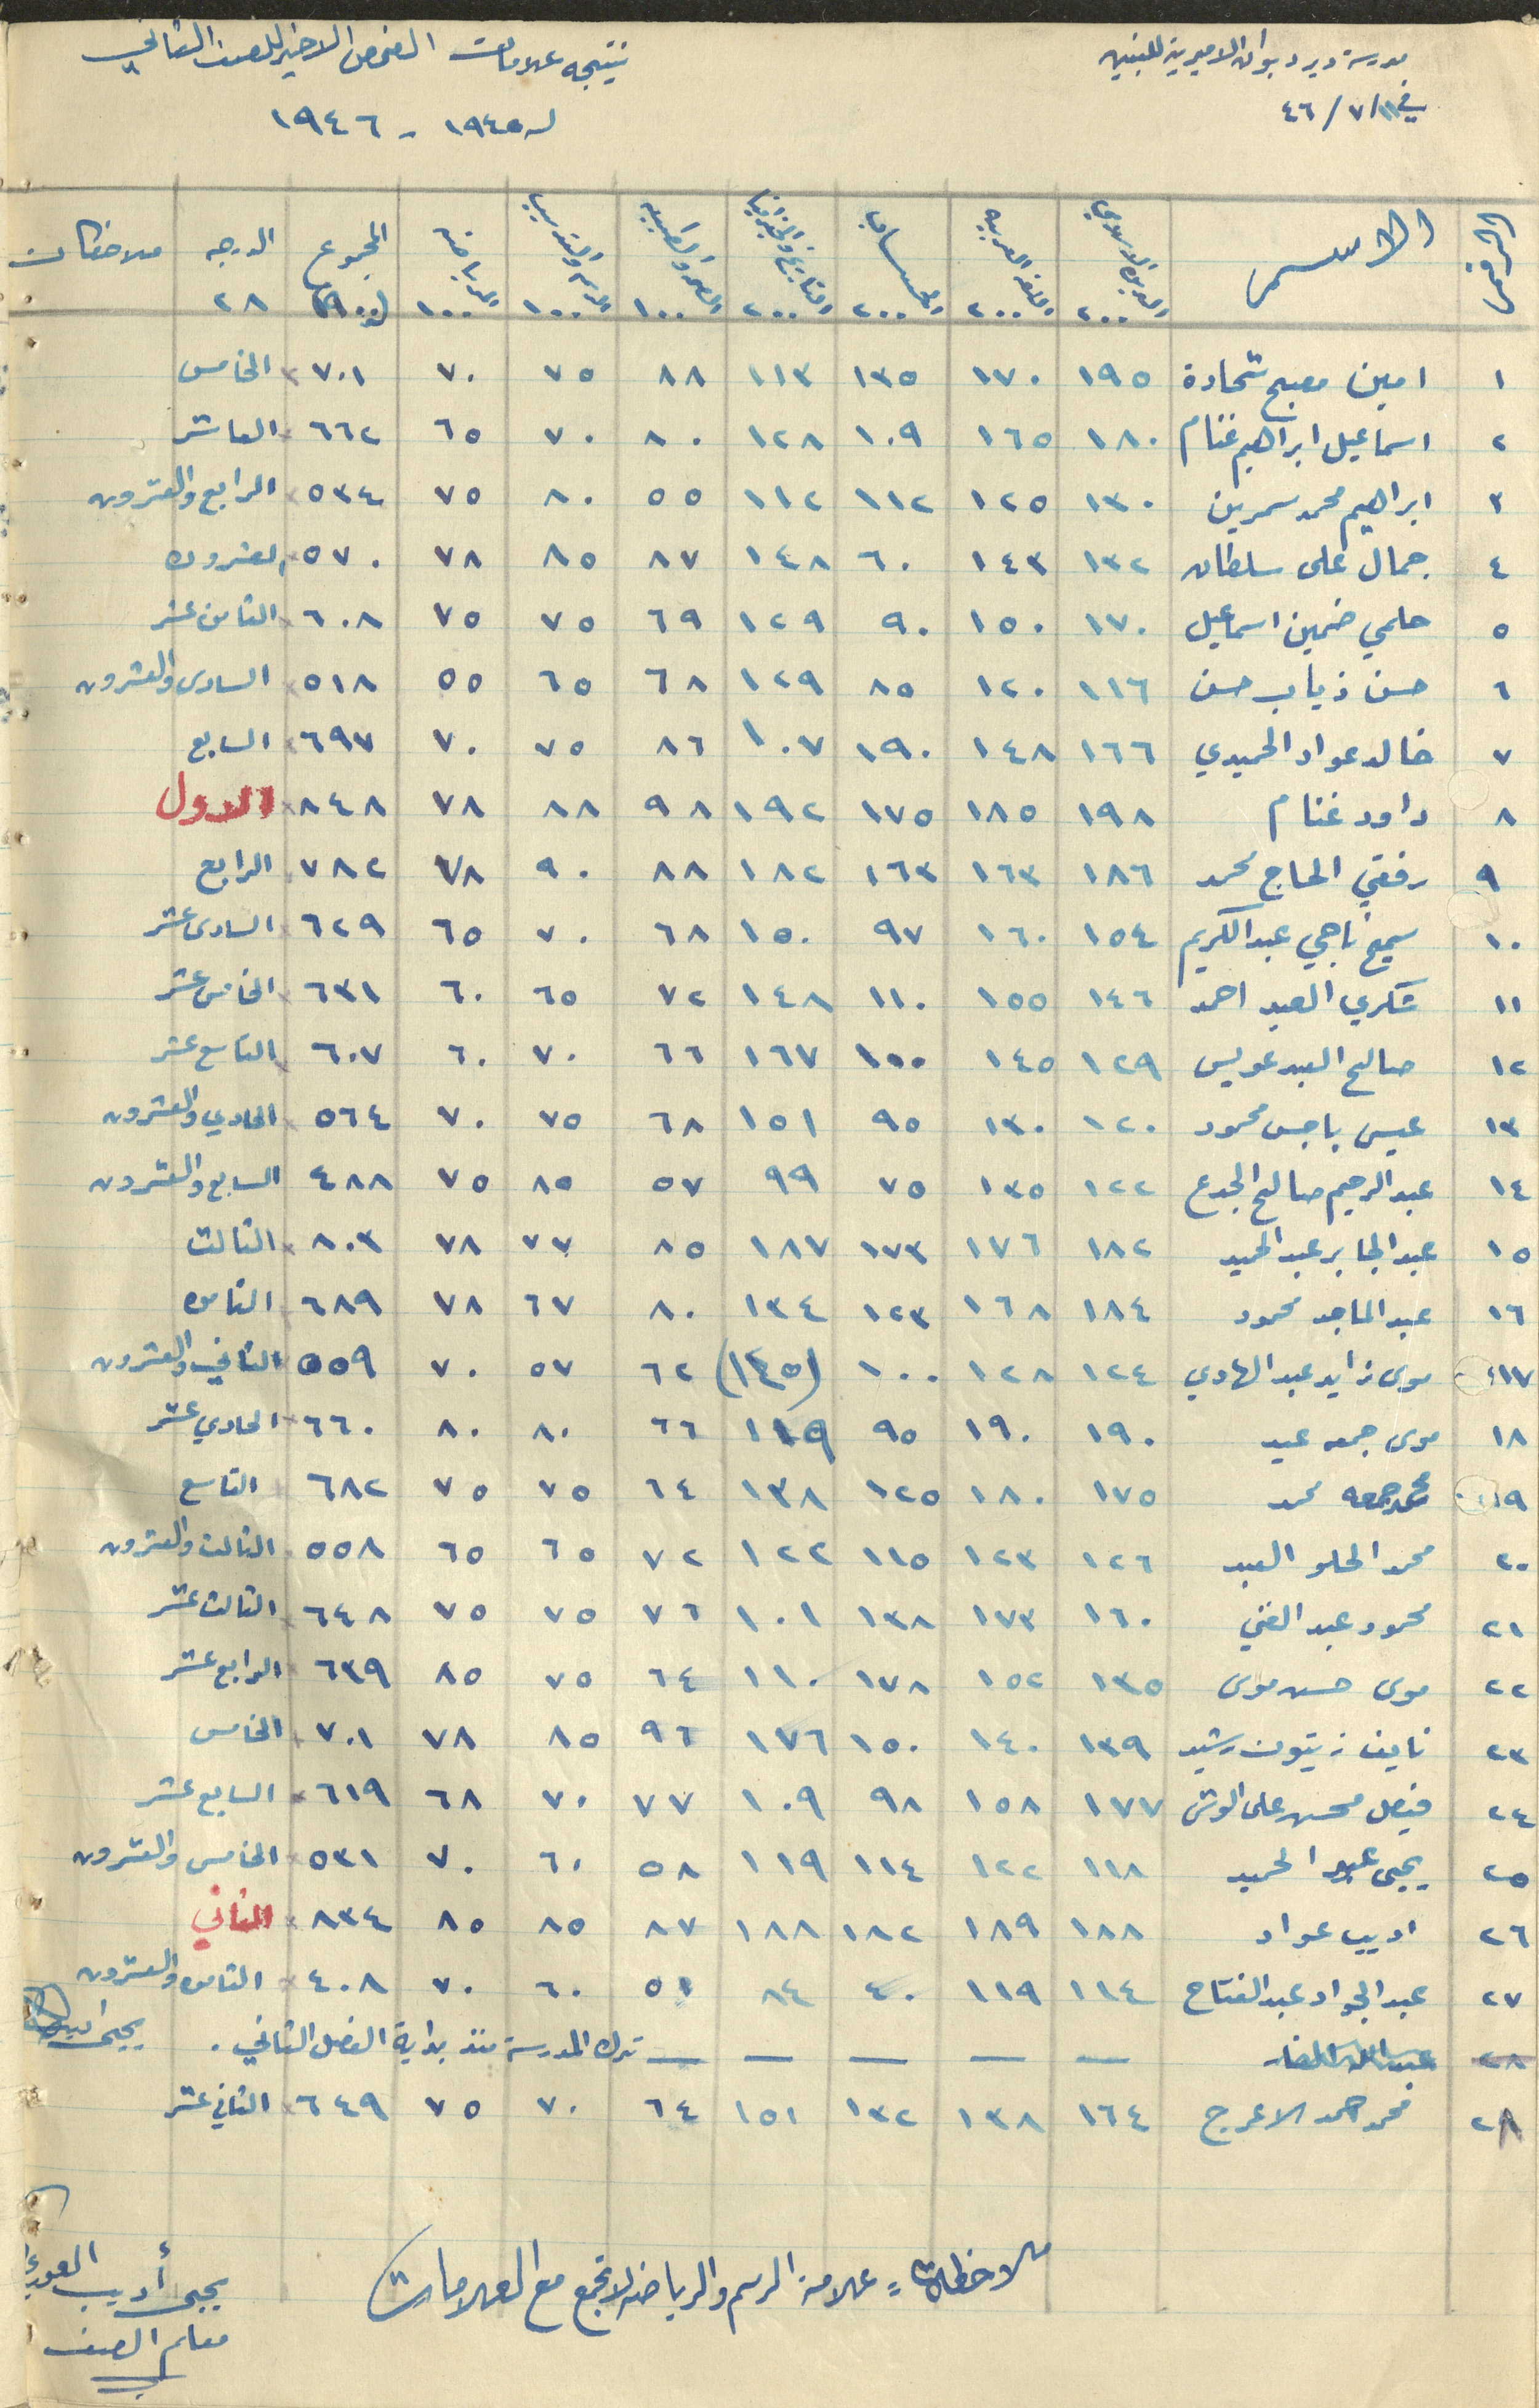 مدرسة دير ديوان الاميرية للبنين
في ١١/٧/٤٦
نتيجه علامات الفحص الاخير للصف الثاني
لسنة ١٩٤٥ - ١٩٤٦
الرقم الاسم الدين الاسلامي ٢٠٠ اللغه العربيه ٢٠٠ الحساب ٢٠٠ التاريخ والجغرافيا ٢٠٠ الصحه والطبيعه ١٠٠ الرسم والترتيب ١٠٠ الرياضة ١٠٠ المجموع ٩٠٠ الدرجه ٢٨ ملاحظات
١ امين مصبح شحادة ١٩٥ ١٧٠ ١٣٥ ١١٣ ٨٨ ٧٥ ٧٠ ٧٠١ الخامس
٢ اسماعيل ابراهيم غنام ١٨٠ ١٦٥ ١٠٩ ١٢٨ ٨٠ ٧٠ ٦٥ ٦٦٢ العاشر
٣ ابراهيم محمد سمرين ١٣٠ ١٢٥ ١١٢ ١١٢ ٥٥ ٨٠ ٧٥ ٥٣٤ الرابع والعشرون
٤ جمال علي سلطان ١٣٢ ١٤٣ ٦٠ ١٤٨ ٨٧ ٨٥ ٧٨ ٥٧٠ العشرون
٥ حلمي خمين اسماعيل ١٧٠ ١٥٠ ٩٠ ١٢٩ ٦٩ ٧٥ ٧٥ ٦٠٨ الثامن عشر
٦ حسن ذياب حسن ١١٦ ١٢٠ ٨٥ ١٢٩ ٦٨ ٦٥ ٥٥ ٥١٨ السادس والعشرون
٧ خالد عواد الحميدي ١٦٦ ١٤٨ ١٩٠ ١٠٧ ٨٦ ٧٥ ٧٠ ٦٩٧ السابع
٨ داود غنام ١٩٨ ١٨٥ ١٧٥ ١٩٢ ٩٨ ٨٨ ٧٨ ٨٤٨ الاول
٩ رفقي الحاج محمد ١٨٦ ١٦٣ ١٦٣ ١٨٢ ٨٨ ٩٠ ٧٨ ٧٨٢ الرابع
١٠ سميح ناجي عبد الكريم ١٥٤ ١٦٠ ٩٧ ١٥٠ ٦٨ ٧٠ ٦٥ ٦٢٩ السادس عشر
١١ شكري العبد احمد ١٤٦ ١٥٥ ١١٠ ١٤٨ ٧٢ ٦٥ ٦٠ ٦٣١ الخامس عشر
١٢ صالح العبد عويس ١٢٩ ١٤٥ ١٠٠ ١٦٧ ٦٦ ٧٠ ٦٠ ٦٠٧ التاسع عشر
١٣ عيسى باجس محمود ١٢٠ ١٣٠ ٩٥ ١٥١ ٦٨ ٧٥ ٧٠ ٥٦٤ الحادي والعشرون
١٤ عبد الرحيم صالح الجدع ١٢٢ ١٣٥ ٧٥ ٩٩ ٥٧ ٨٥ ٧٥ ٤٨٨ السابع والعشرون
١٥ عبد الجابر عبد الحميد ١٨٢ ١٧٦ ١٧٣ ١٨٧ ٨٥ ٧٣ ٧٨ ٨٠٣ الثالث
١٦ عبد الماجد محمود ١٨٤ ١٦٨ ١٢٣ ١٣٤ ٨٠ ٦٧ ٧٨ ٦٨٩ الثامن
١٧ موسى زايد عبد الهادي ١٢٤ ١٢٨ ١٠٠ (١٤٥) ٦٢ ٥٧ ٧٠ ٥٥٩ الثاني والعشرون
١٨ موسى جمعه عيد ١٩٠ ١٩٠ ٩٥ ١١٩ ٦٦ ٨٠ ٨٠ ٦٦٠ الحادي عشر
١٩ محمد جمعه محمد ١٧٥ ١٨٠ ١٢٥ ١٣٨ ٦٤ ٧٥ ٧٥ ٦٨٢ التاسع
٢٠ محمد الحلو العبد ١٢٦ ١٢٣ ١١٥ ١٢٢ ٧٢ ٦٥ ٦٥ ٥٥٨ الثالث والعشرون
٢١ محمود عبد الغني ١٦٠ ١٧٣ ١٣٨ ١٠١ ٧٦ ٧٥ ٧٥ ٦٤٨ الثالث عشر
٢٢ موسى حسن موسى ١٣٥ ١٥٢ ١٧٨ ١١٠ ٦٤ ٧٥ ٨٥ ٦٣٩ الرابع عشر
٢٣ نايف زيتون رشيد ١٣٩ ١٤٠ ١٥٠ ١٧٦ ٩٦ ٨٥ ٧٨ ٧٠١ الخامس
٢٤ فيصل محسن علي الوش ١٧٧ ١٥٨ ٩٨ ١٠٩ ٧٧ ٧٠ ٦٨ ٦١٩ السابع عشر
٢٥ يحيى عبد الحميد ١١٨ ١٢٢ ١١٤ ١١٩ ٥٨ ٦٠ ٧٠ ٥٣١ الخامس والعشرون
٢٦ اديب عواد ١٨٨ ١٨٩ ١٨٢ ١٨٨ ٨٧ ٨٥ ٨٥ ٨٣٤ الثاني
٢٧ عبد الجواد عبد الفتاح ١١٤ ١١٩ ٤٠ ٨٤ ٥١ ٦٠ ٧٠ ٤٠٨ الثامن والعشرون
٢٨ — — — — — ترك المدرسة منذ بداية الفصل الثاني . يحيى
٢٨ محمد حمد الاعرج ١٦٤ ١٣٨ ١٣٢ ١٥١ ٦٤ ٧٠ ٧٥ ٦٤٩ الثاني عشر
ملاحظات = علامة الرسم والرياضه لا تجمع مع العلامات
يحيى أديب
معلم الصف